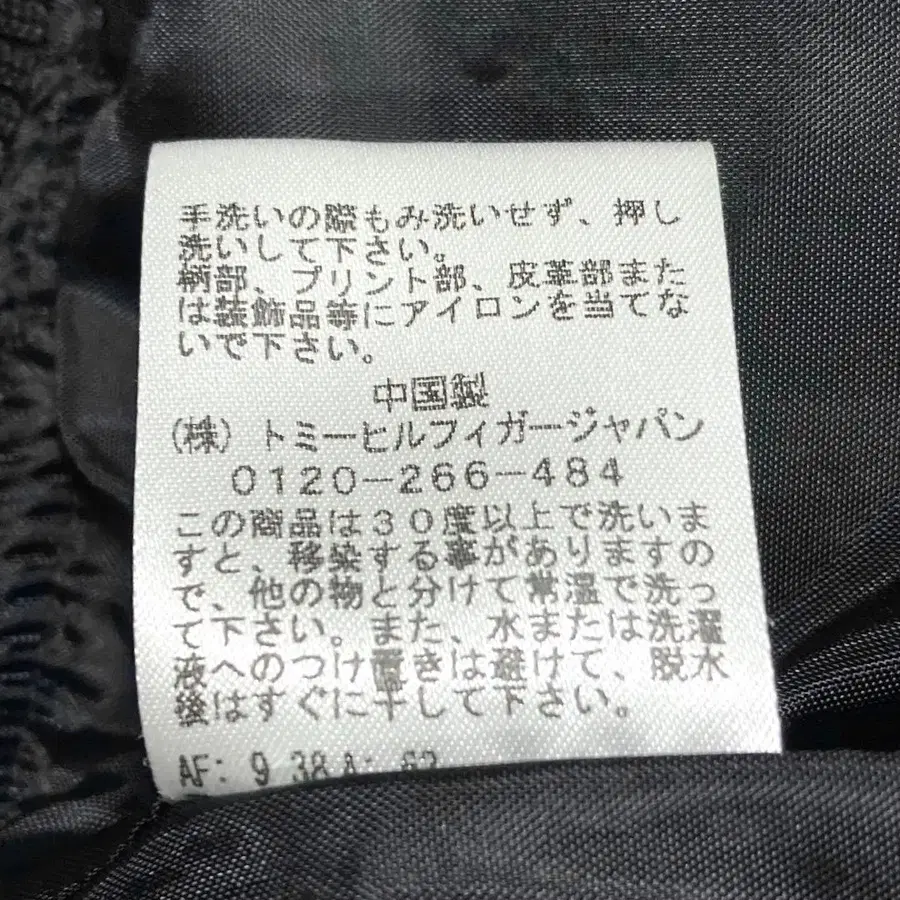 手洗いの際もみ洗いせず、押し
洗いして下さい。
柄部、プリント部、皮革部また
は装飾品等にアイロンを当てな
いで下さい。
中国製
(株) トミーヒルフィガージャパン
0120-266-484
この商品は30度以上で洗いま
すと、移染する事がありますの
で、他の物と分けて常温で洗っ
て下さい。また、水または洗濯
液へのつけ置きは避けて、脱水
後はすぐに干して下さい。
AF: 9 38 A: 62